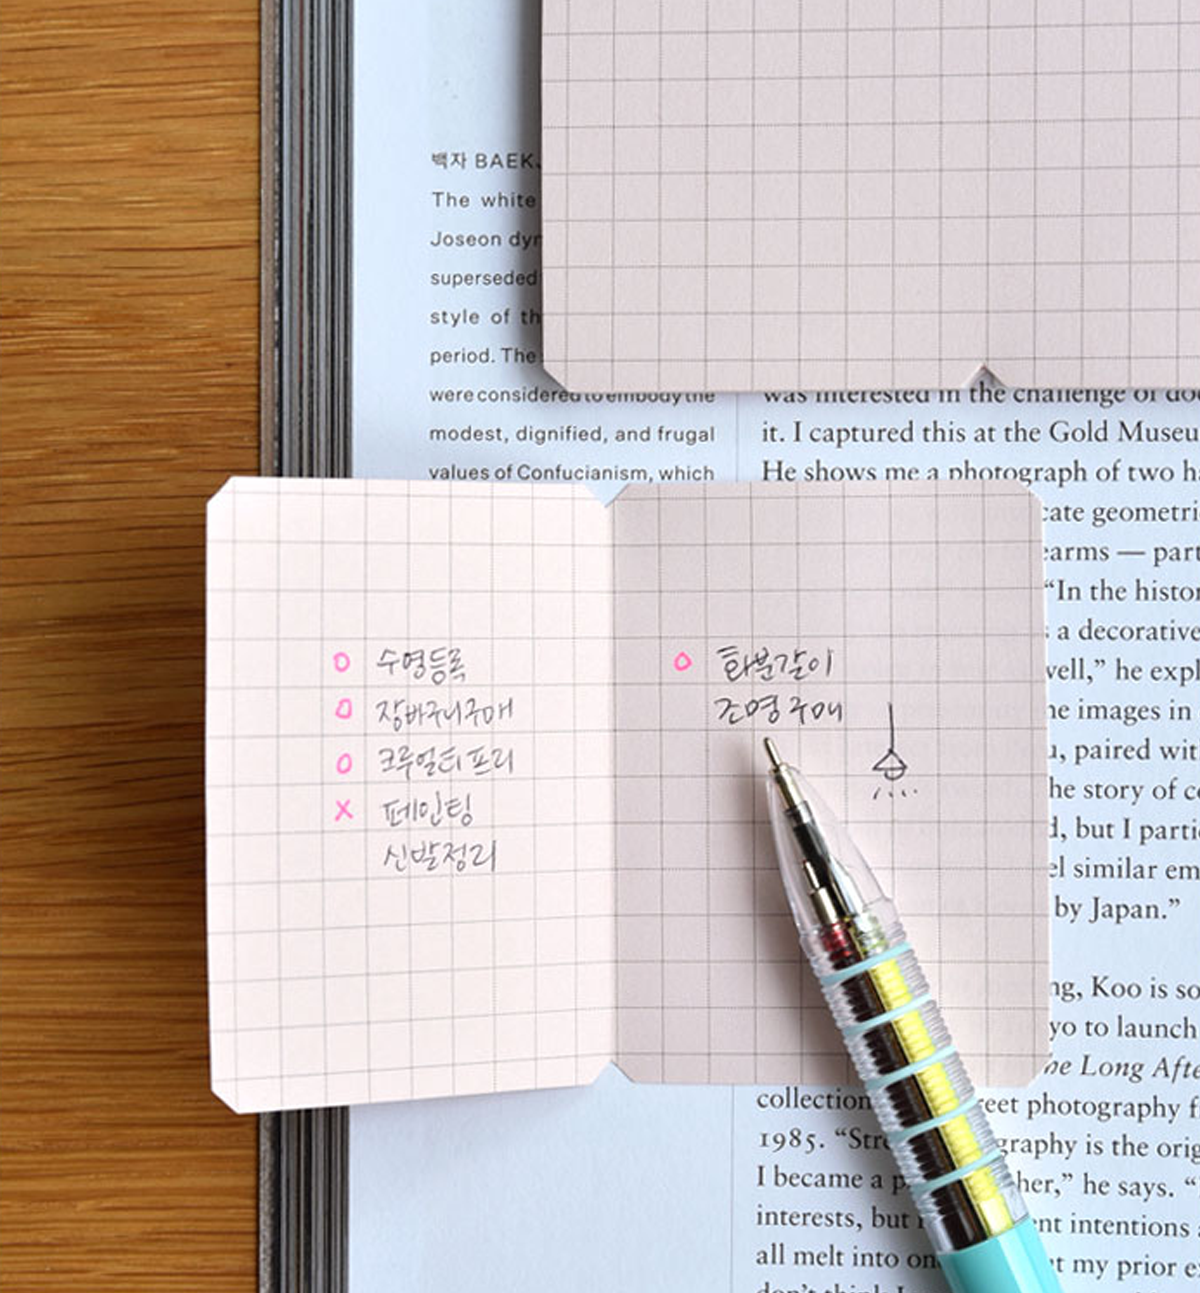 백자 BAEK
The white
Joseon dyn
superseded
style of th
period. The
were considered to embody the
modest, dignified, and frugal
values of Confucianism, which
was interested in the challenge of
it. I captured this at the Gold Museu
He shows me a photograph of two ha
cate geometri
earms — part
“In the histor
a decorative
well,” he expl
he images in
u, paired wit
he story of co
d, but I parti
el similar em
by Japan.”
ng, Koo is so
yo to launch
he Long Afte
collection
reet photography f
1985. “Stre
graphy is the orig
I became a p
her,” he says. “
interests, but
nt intentions
all melt into on
t my prior e
don't think I
O 수영등록
O 장바구니구매
O 크루얼티프리
X 페인팅
신발정리
O 화분갈이
조명구매